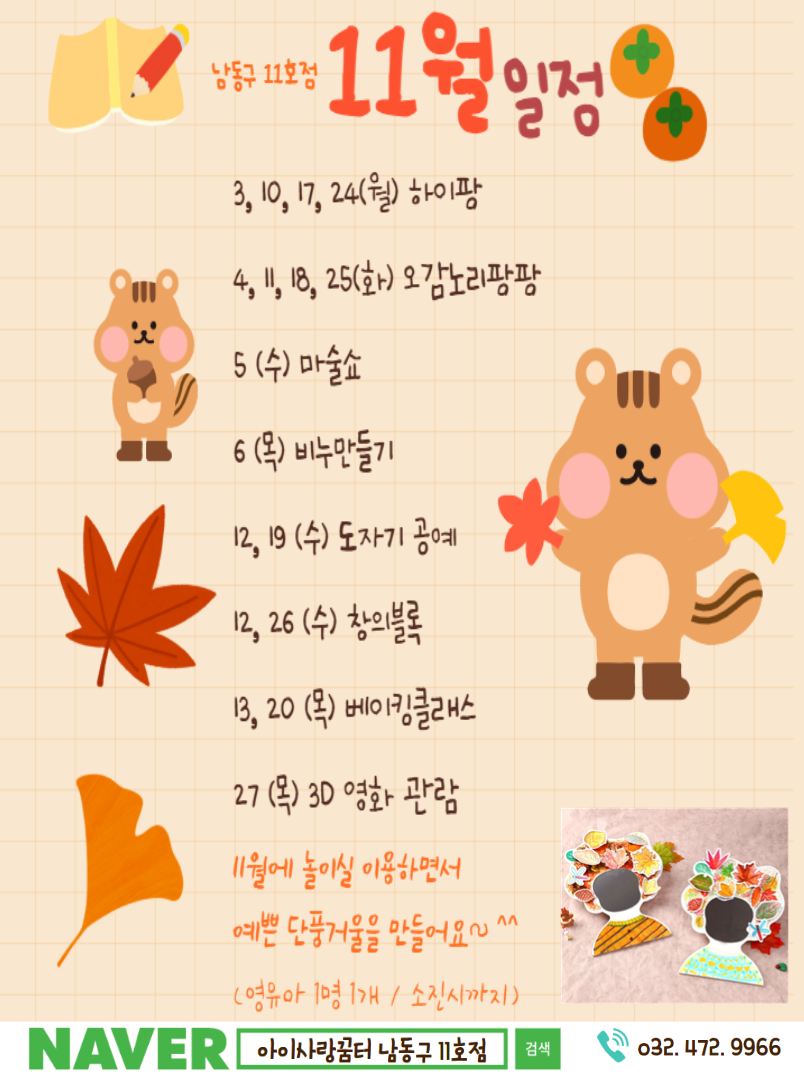 남동구 11호점 11월 일정
3, 10, 17, 24(월) 하이팡
4, 11, 18, 25(화) 오감노리팡팡
5 (수) 마술쇼
6 (목) 비누만들기
12, 19 (수) 도자기 공예
12, 26 (수) 창의블록
13, 20 (목) 베이킹클래스
27 (목) 3D 영화 관람
11월에 놀이실 이용하면서
예쁜 단풍거울을 만들어요~ ^^
(영유아 1명 1개 / 소진시까지)
NAVER 아이사랑꿈터 남동구 11호점 검색 032. 472. 9966